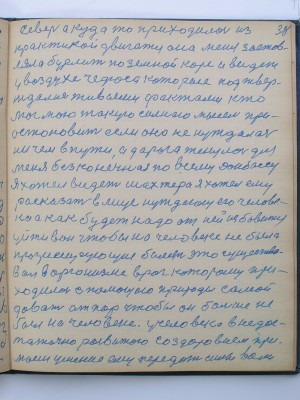 север а куда то приходилось из 38
практикой двигатися она меня застав-
ляла бурлить по земной коре и видеть
у воздухе чудеса которые подтвер-
ждались живыми фактами кто
мог мою такую силу мысли при-
остоновить если оно не нуждалась
ни чем в пути, а дарога тянулась для
меня безконечная по всему донбассу
Я хотел видеть шахтера я хотел ему
расказать в лице нужду его челове-
ка как будет надо от ней избавитися
уйти вон чтобы на человеке не была
прогресирующие болезнь это существо-
вал в организме враг которому при-
ходилось с помощью природы самой
довать отпор чтобы он больше не
был на человеке. у человека недос-
таточно развитого создавшем при-
 ему передать силы воли